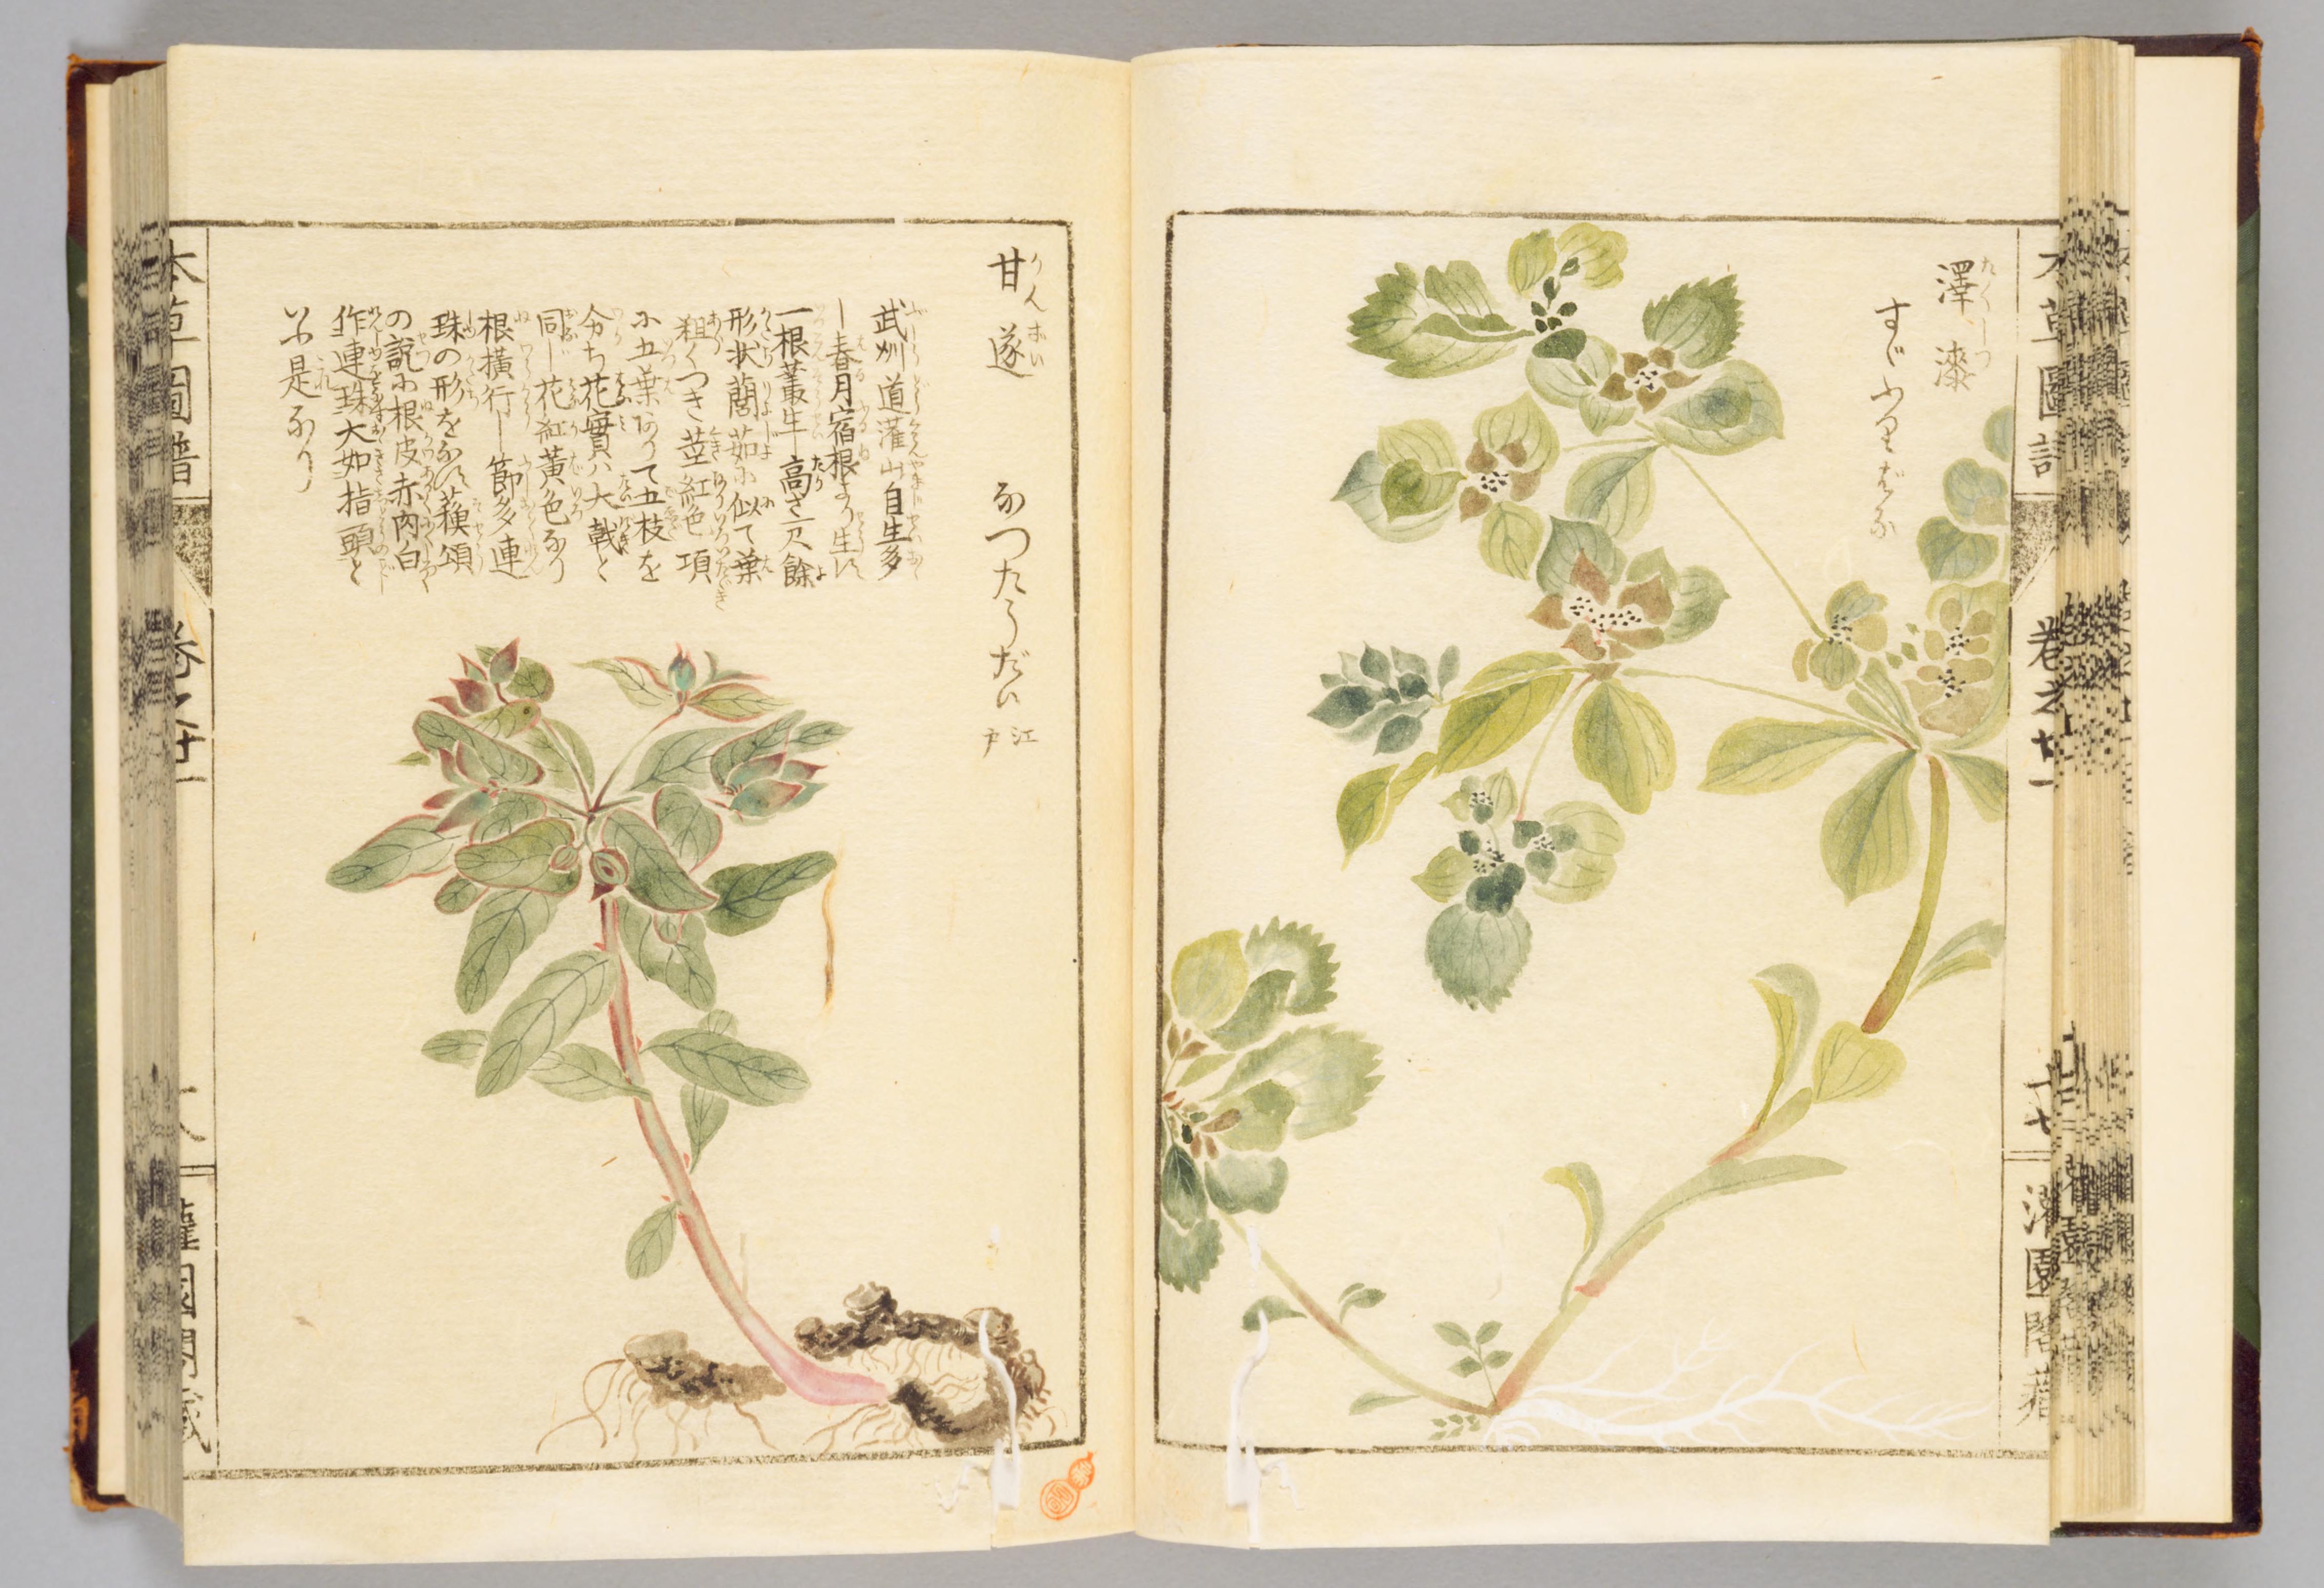 澤漆
たくしつ
すゞふりばな
本草圖譜
卷之廿一
十七
灌園閣藏
甘遂
かんすい
なつたうだい
江戸
武州道灌山自生多
し春月宿根より生じ
一根叢生高さ尺餘
形状䕡茹に似て葉
粗くつき莖紅色項
に五葉ありて五枝を
分ち花實ハ大戟と
同じ花紅黃色なり
根橫行し節多連
珠の形をなす蘓頌
の說に根皮赤內白
作連珠大如指頭と
いふ是なり
本草圖譜
卷之廿一
灌園閣藏